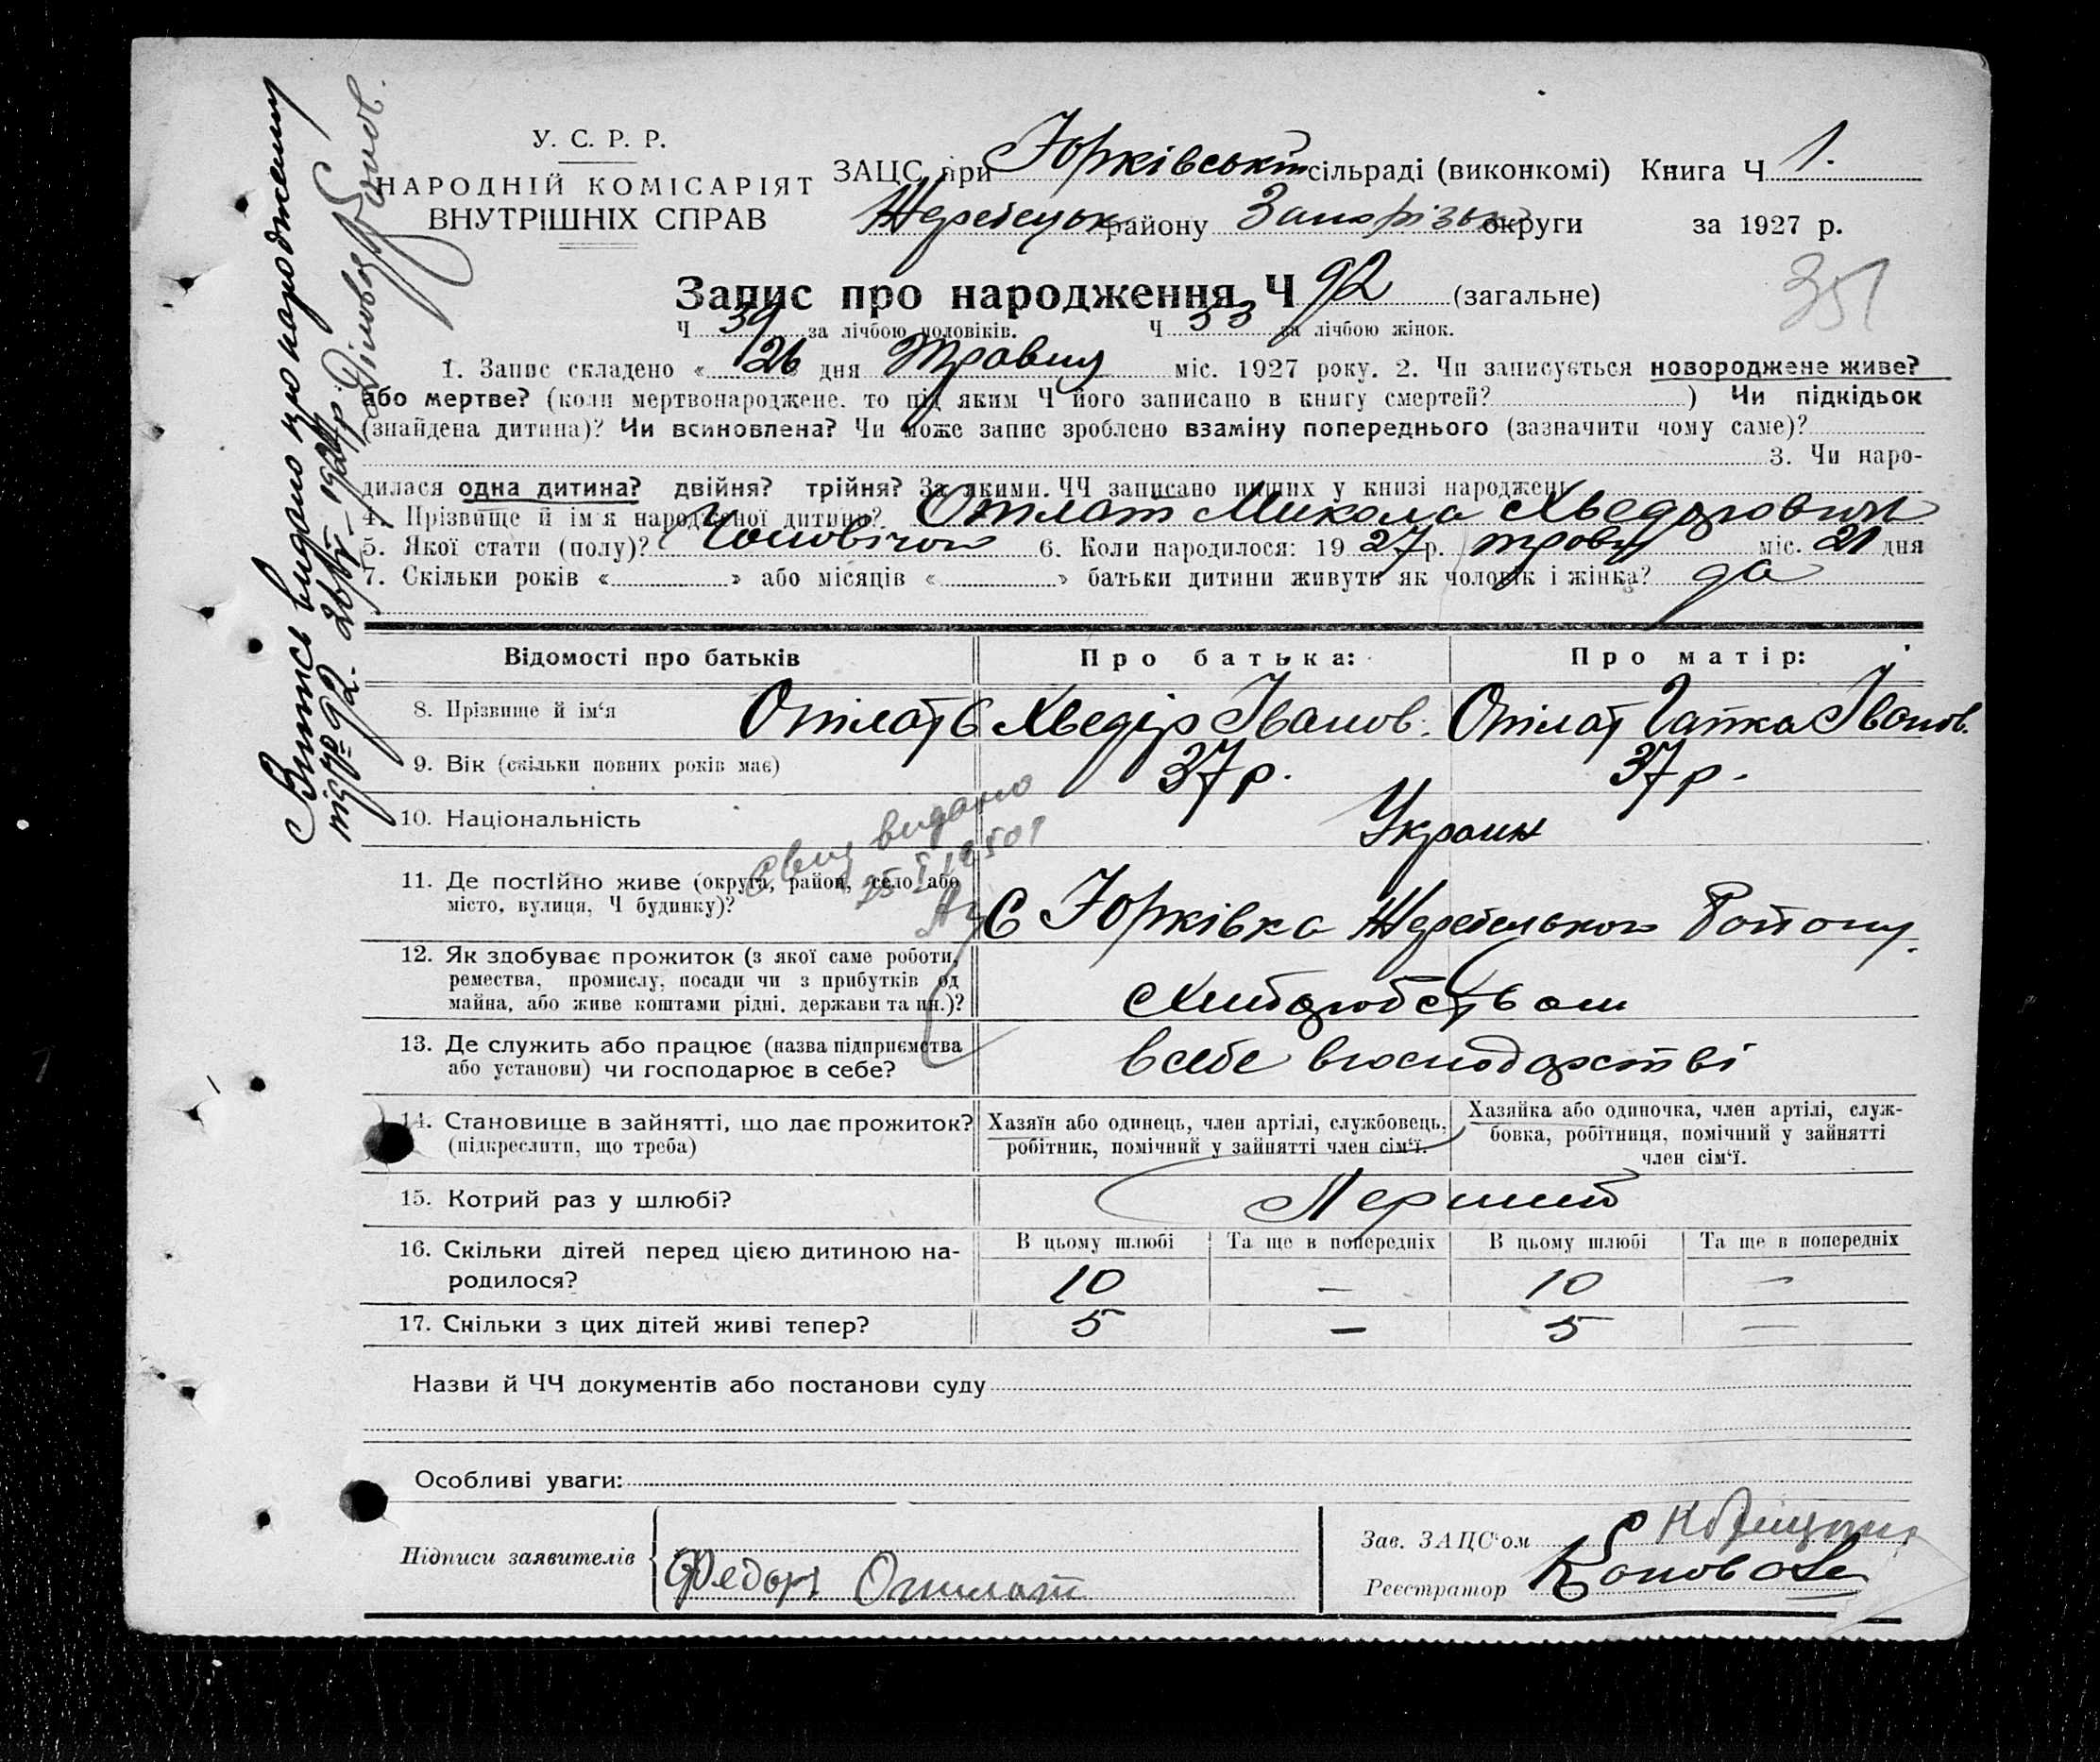 У. С. Р. Р.
НАРОДНІЙ КОМІСАРІЯТ
ВНУТРІШНІХ СПРАВ
ЗАЦС при Юрківськїй сільраді (виконкомі) Книга Ч 1.
Жеребецьк району Запорізьк округи за 1927 р.
351
Запис про народження Ч 92 (загальне)
Ч 39 за лічбою чоловіків. Ч 33 за лічбою жінок.
1. Запис складено « 26 дня Травня міс. 1927 року. 2. Чи записується новороджене живе?
або мертве? (коли мертвонароджене, то під яким Ч його записано в книгу смертей? ) Чи підкідьок
(знайдена дитина)? Чи всиновлена? Чи може запис зроблено взаміну попереднього (зазначити чому саме)?
3. Чи наро-
дилася одна дитина? двійня? трійня? За якими ЧЧ записано инших у книзі народжень
4. Прізвище й імя народженої дитини? Отлат Микола Хведорович
5. Якої стати (полу)? Чоловічої 6. Коли народилося: 19 27 р. травня міс. 21 дня
7. Скільки років « » або місяців « » батьки дитини живуть як чоловік і жінка? да
Відомості про батьків Про батька: Про матір:
8. Прізвище й ім‘я Отлат Хведір Іванов. Отлат Гапка Іванов.
9. Вік (скільки повних років має) 37 р. 37 р.
10. Національність Украин
11. Де постійно живе (округа, район, село або
місто, вулиця, Ч будинку)? С Юрківка Жеребецького Району.
видано
12. Як здобуває прожиток (з якої саме роботи,
ремества, промислу, посади чи з прибутків од
майна, або живе коштами рідні, держави та ин.)? Хліборобством
13. Де служить або працює (назва підприємства
або установи) чи господарює в себе? в себе в господарстві
14. Становище в зайнятті, що дає прожиток?
(підкреслити, що треба)
Хазяїн або одинець, член артілі, службовець,
робітник, помічний у зайнятті член сім‘ї.
Хазяйка або одиночка, член артілі, служ-
бовка, робітниця, помічний у зайнятті
член сім‘ї.
15. Котрий раз у шлюбі? Перший
16. Скільки дітей перед цією дитиною на-
родилося?
В цьому шлюбі Та ще в попередніх В цьому шлюбі Та ще в попередніх
10 — 10 —
17. Скільки з цих дітей живі тепер? 5 — 5 —
Назви й ЧЧ документів або постанови суду
Особливі уваги:
Підписи заявителів Федор Отлат
Зав. ЗАЦС‘ом
Реєстратор
Витись видано про народження
під № 92.